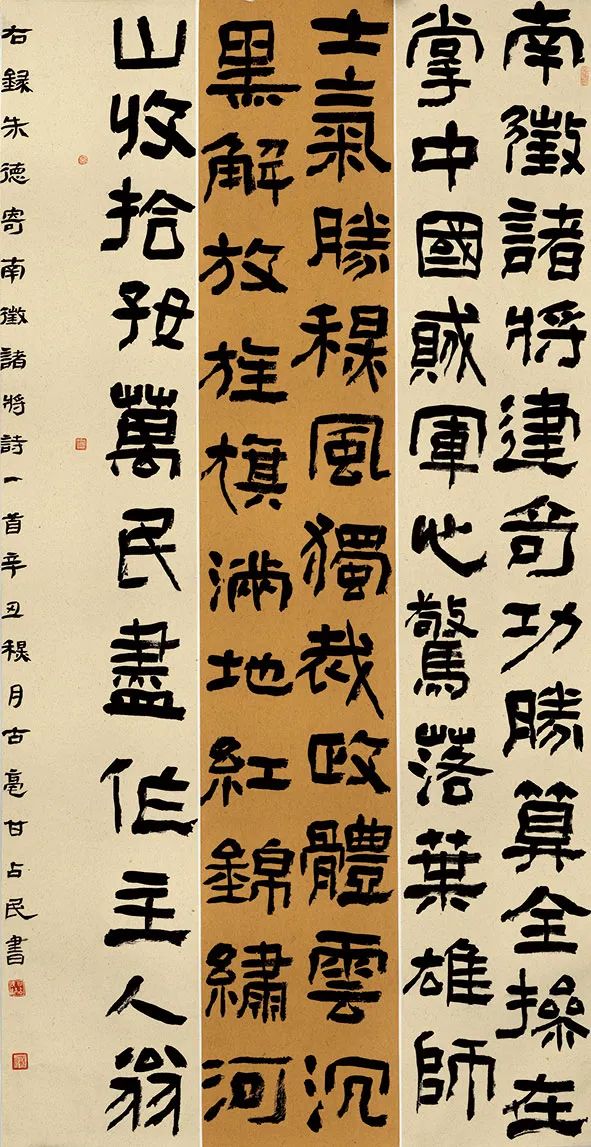 南徵諸將建奇功勝算全操在
掌中國賊軍心驚落葉雄師
士氣勝穐風獨裁政體雲沉
黑解放旌旗滿地紅錦繡河
山收拾好萬民盡作主人翁
右録朱德寄南徵諸將詩一首辛丑穐月古亳甘占民書